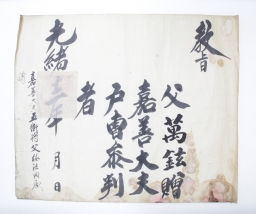 敎旨
父萬鉉贈
嘉善大夫
戶曹叅判
者
光緖 年 月 日
嘉善大夫五衛將父